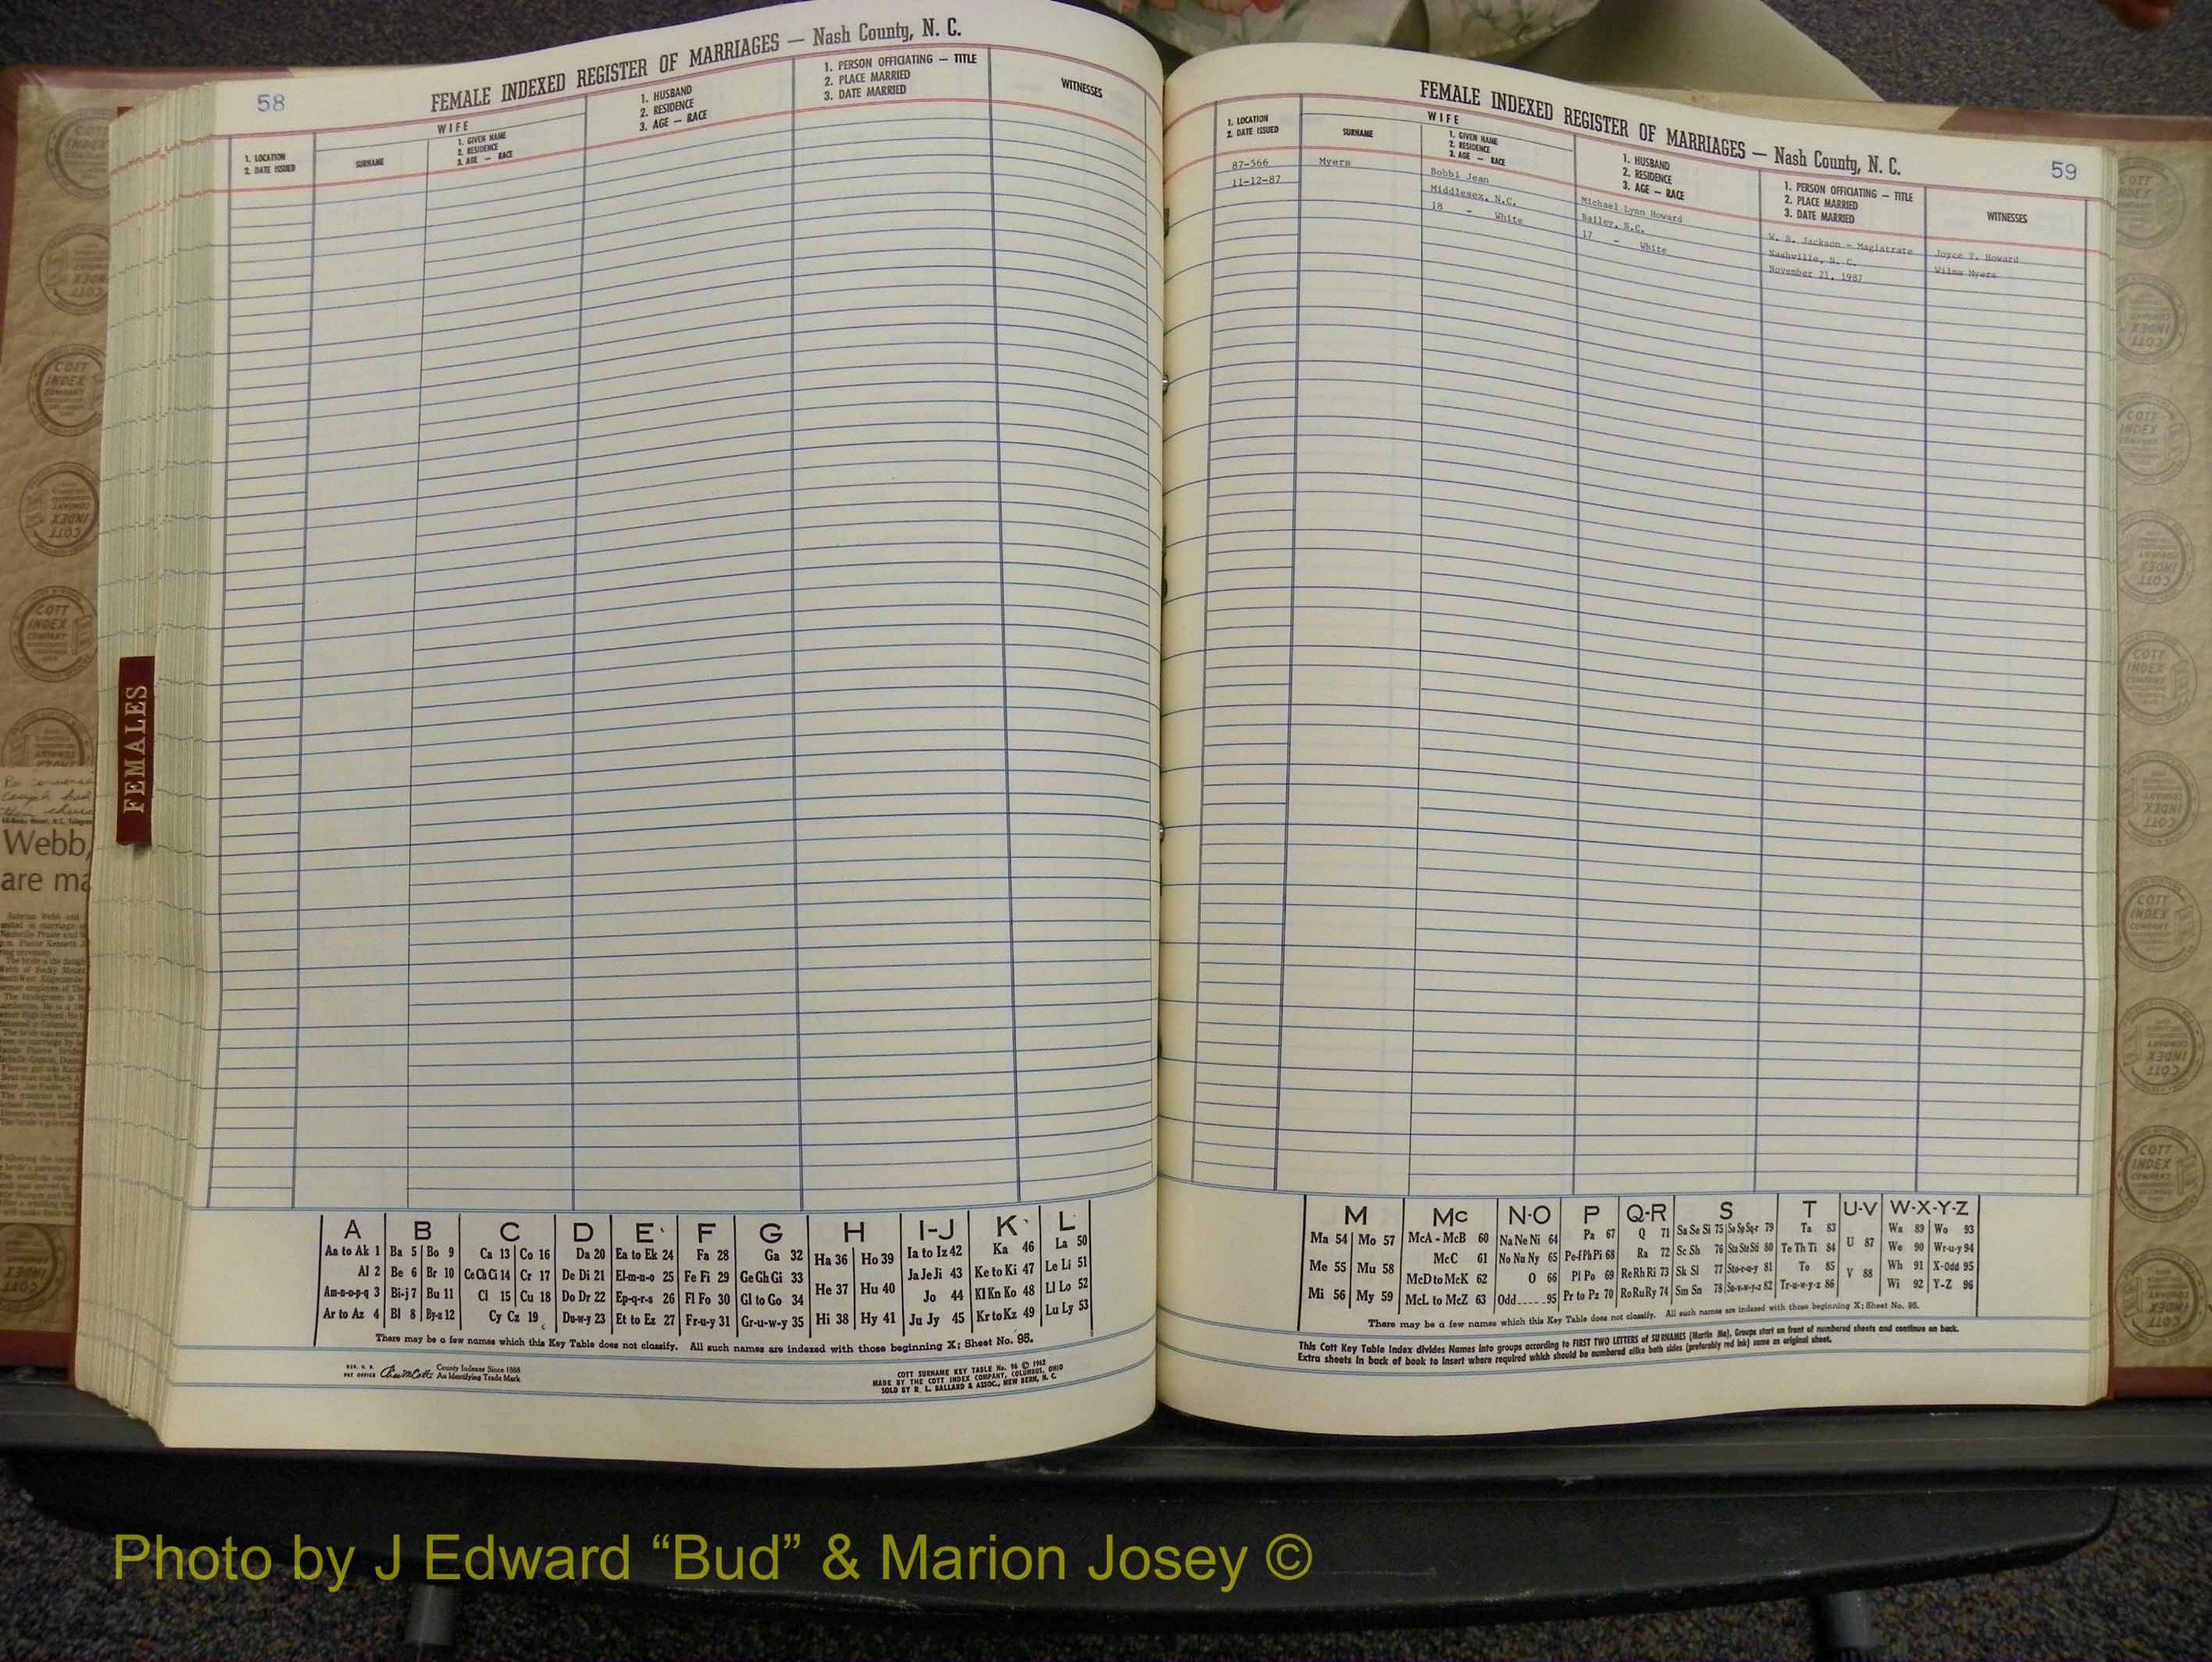 58
FEMALE INDEXED REGISTER OF MARRIAGES — Nash County, N. C.
1. LOCATION
2. DATE ISSUED
WIFE
SURNAME
1. GIVEN NAME
2. RESIDENCE
3. AGE — RACE
1. HUSBAND
2. RESIDENCE
3. AGE — RACE
1. PERSON OFFICIATING — TITLE
2. PLACE MARRIED
3. DATE MARRIED
WITNESSES
A
Aa to Ak 1
Al 2
Am-n-o-p-q 3
Ar to Az 4
B
Ba 5 Bo 9
Be 6 Br 10
Bi-j 7 Bu 11
Bl 8 By-z 12
C
Ca 13 Co 16
Ce Ch Ci 14 Cr 17
Cl 15 Cu 18
Cy Cz 19
D
Da 20
De Di 21
Do Dr 22
Du-w-y 23
E
Ea to Ek 24
El-m-n-o 25
Ep-q-r-s 26
Et to Ez 27
F
Fa 28
Fe Fi 29
Fl Fo 30
Fr-u-y 31
G
Ga 32
Ge Gh Gi 33
Gl to Go 34
Gr-u-w-y 35
H
Ha 36 Ho 39
He 37 Hu 40
Hi 38 Hy 41
I-J
Ia to Iz 42
Ja Je Ji 43
Jo 44
Ju Jy 45
K
Ka 46
Ke to Ki 47
Kl Kn Ko 48
Kr to Kz 49
L
La 50
Le Li 51
Ll Lo 52
Lu Ly 53
There may be a few names which this Key Table does not classify. All such names are indexed with those beginning X; Sheet No. 95.
County Indexes Since 1888
An Identifying Trade Mark
COTT SURNAME KEY TABLE No. 96 © 1962
MADE BY THE COTT INDEX COMPANY, COLUMBUS, OHIO
SOLD BY R. L. BALLARD & ASSOC., NEW BERN, N. C.
FEMALE INDEXED REGISTER OF MARRIAGES — Nash County, N. C.
59
1. LOCATION
2. DATE ISSUED
WIFE
SURNAME
1. GIVEN NAME
2. RESIDENCE
3. AGE — RACE
1. HUSBAND
2. RESIDENCE
3. AGE — RACE
1. PERSON OFFICIATING — TITLE
2. PLACE MARRIED
3. DATE MARRIED
WITNESSES
87-566
11-12-87
Myers
Bobbi Jean
Middlesex, N.C.
18 - White
Michael Lynn Howard
Bailey, N.C.
17 - White
W. B. Jackson - Magistrate
Nashville, N. C.
November 21, 1987
Joyce T. Howard
Wilma Myers
M
Ma 54 Mo 57
Me 55 Mu 58
Mi 56 My 59
Mc
McA - McB 60
McC 61
McD to McK 62
McL to McZ 63
N-O
Na Ne Ni 64
No Nu Ny 65
O 66
Odd 95
P
Pa 67
Pe-f Ph Pi 68
Pl Po 69
Pr to Pz 70
Q-R
Q 71
Ra 72
Re Rh Ri 73
Ro Ru Ry 74
S
Sa Se Si 75 So Sp Sq-r 79
Sc Sh 76 Sta Ste Sti 80
Sk Sl 77 Sto-r-u-y 81
Sm Sn 78 Su-v-w-y-z 82
T
Ta 83
Te Th Ti 84
To 85
Tr-u-w-y-z 86
U-V
U 87
V 88
W-X-Y-Z
Wa 89 Wo 93
We 90 Wr-u-y 94
Wh 91 X-Odd 95
Wi 92 Y-Z 96
There may be a few names which this Key Table does not classify. All such names are indexed with those beginning X; Sheet No. 95.
This Cott Key Table Index divides Names into groups according to FIRST TWO LETTERS of SURNAMES (Martin Ma), Groups start on front of numbered sheets and continue on back.
Extra sheets in back of book to insert where required which should be numbered alike both sides (preferably red ink) same as original sheet.
FEMALES
Webb,
are ma
COTT
INDEX
COMPANY
Photo by J Edward “Bud” & Marion Josey ©